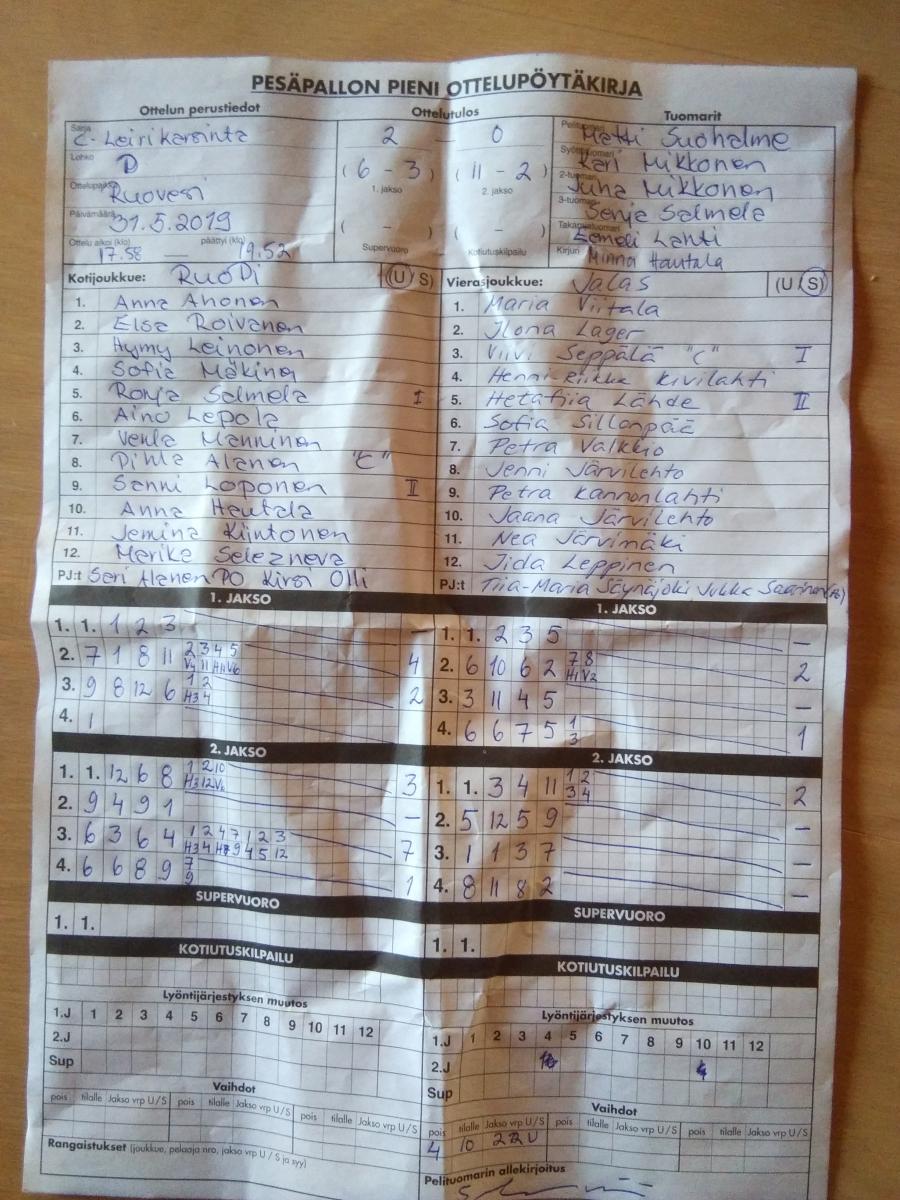 PESÄPALLON PIENI OTTELUPÖYTÄKIRJA
Ottelun perustiedot
Sarja C-Leirikarsinta
Lohko D
Ottelupaikka Ruovesi
Päivämäärä 31.5.2019
Ottelu alkoi (klo) 17.58 — päättyi (klo) 19.52
Ottelutulos
2 — 0
(6 - 3) (11 - 2)
1. jakso 2. jakso
( - ) ( - )
Supervuoro Kotiutuskilpailu
Tuomarit
Matti Suohalme
Kari Mikkonen
2-tuomari Juha Mikkonen
3-tuomari Senja Salmela
Takatuomari Eemeli Lahti
Kirjuri Minna Hautala
Kotijoukkue: RuoPi (U/S)
1. Anna Ahonen
2. Elsa Roivanen
3. Hymy Leinonen
4. Sofia Mäkinen
5. Ronja Salmela I
6. Aino Lepola
7. Venla Manninen
8. Pihla Alanen "C"
9. Sanni Loponen II
10. Anna Hautala
11. Jemina Kiintonen
12. Marika Selezneva
PJ:t Sari Alanen PO Kirsi Olli
Vierasjoukkue: Jalas (U/S)
1. Maria Viitala
2. Ilona Lager
3. Viivi Seppälä "C" I
4. Henni-Riikka Kivilahti
5. Hetafiia Lähde II
6. Sofia Sillanpää
7. Petra Valkkio
8. Jenni Järvilehto
9. Petra Kannonlahti
10. Jaana Järvilehto
11. Nea Järvimäki
12. Iida Leppinen
PJ:t Tiia-Maria Säynäjoki Jukka Saarinen
1. JAKSO
1. 1. 1 2 3 —
2. 7 1 8 11 2 3 4 5 4
V4 11 H11 V6
3. 9 8 12 6 1 2 2
H3 4
4. 1
2. JAKSO
1. 1. 12 6 8 1 2 10 3
H3 12 V6
2. 9 4 9 1 —
3. 6 3 6 4 1 2 4 7 1 2 3 7
H3 4 9 4 5 12
4. 6 6 8 9 7 1
9
SUPERVUORO
1. 1.
KOTIUTUSKILPAILU
Lyöntijärjestyksen muutos
1.J 1 2 3 4 5 6 7 8 9 10 11 12
2.J
Sup
Vaihdot
pois tilalle Jakso vrp U/S pois tilalle Jakso vrp U/S pois tilalle Jakso vrp U/S
Rangaistukset (joukkue, pelaaja nro, jakso vrp U/S ja syy)
1. JAKSO
1. 1. 2 3 5 —
2. 6 10 6 2 7 8 2
H1 V2
3. 3 11 4 5 —
4. 6 6 7 5 1 1
3
2. JAKSO
1. 1. 3 4 11 1 2 2
3 4
2. 5 12 5 9 —
3. 1 1 3 7 —
4. 8 11 8 2 —
SUPERVUORO
1. 1.
KOTIUTUSKILPAILU
Lyöntijärjestyksen muutos
1.J 1 2 3 4 5 6 7 8 9 10 11 12
2.J 10 4
Sup
Vaihdot
pois tilalle Jakso vrp U/S pois tilalle Jakso vrp U/S pois tilalle Jakso vrp U/S
4 10 22U
Pelituomarin allekirjoitus